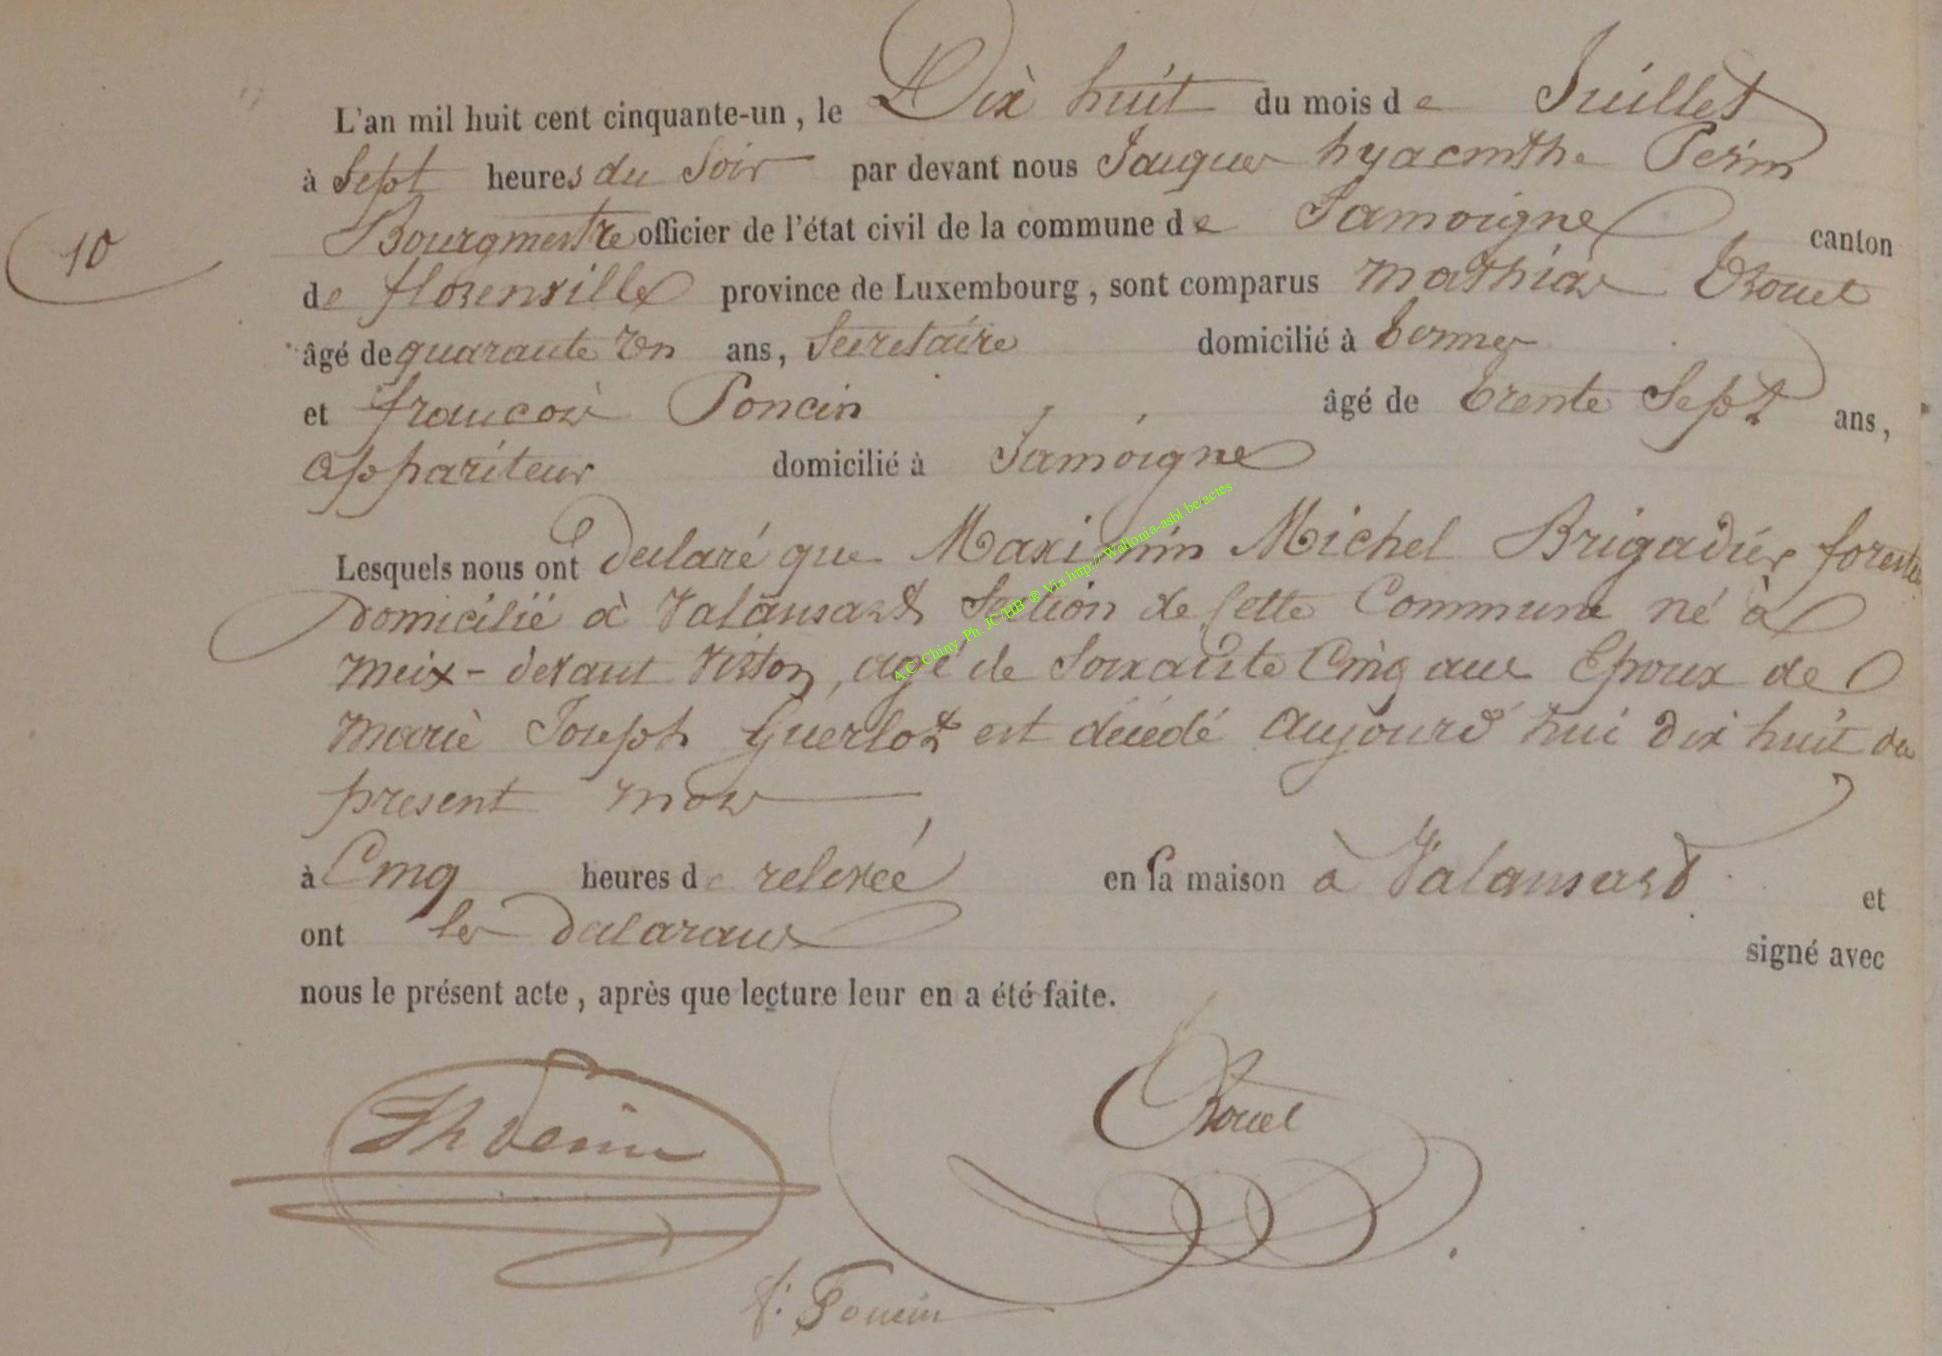 L'an mil huit cent cinquante-un, le Dix huit du mois de Juillet
à Sept heures du Soir par devant nous Jauques hyacinthe Perin
Bourgmestre officier de l'état civil de la commune de Jamoigne canton
10
de florenville province de Luxembourg, sont comparus Mathias
âgé de quarante un ans, Secretaire domicilié à termes
et francois Poncin âgé de trente Sept ans,
appariteur domicilié à Jamoigne
Lesquels nous ont declaré que Maximin Michel Brigadier forestier
domicilié à Valansart Section de Cette Commune né à
Meix-devant Virton, agé de Soixante Cinq ans Epoux de
Marie Joseph Guerlot est décédé aujourd'hui dix huit du
present mois
à Cinq heures de relevée en sa maison à Valansart et
ont les declarans signé avec
nous le présent acte, après que lecture leur en a été faite.
JhPerin
f: Poncin
A.C. Chiny Ph. JC HB ® Via http://Wallonia-asbl.be/actes